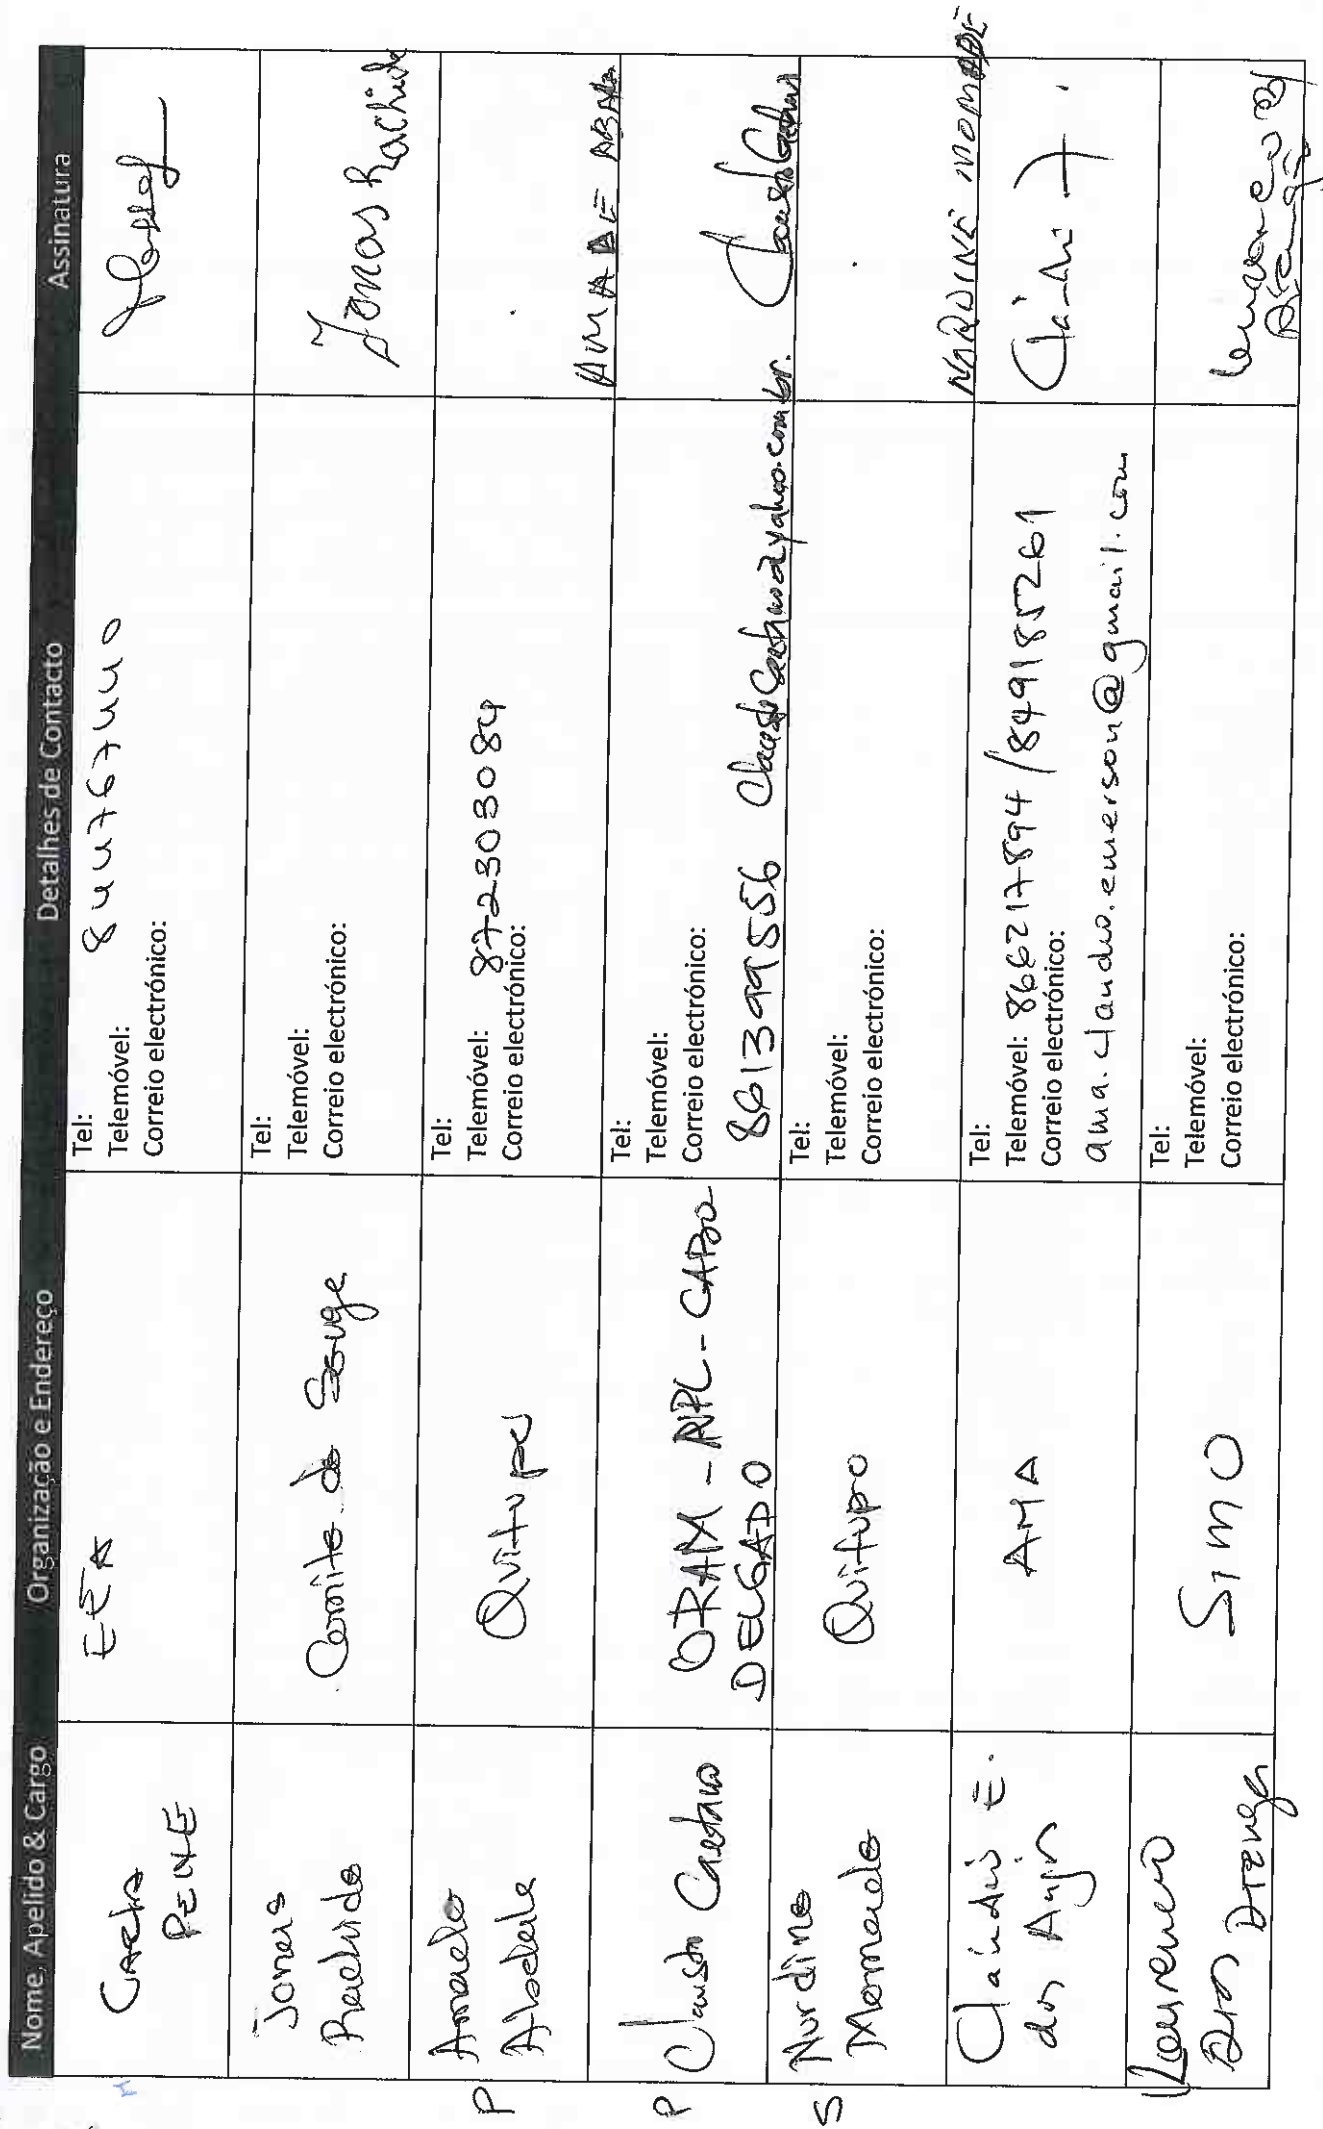 Nome, Apelido & Cargo Organização e Endereço Detalhes de Contacto Assinatura
PENE
EEA
Tel: 
Telemóvel: 844767440
Correio electrónico:
Jonas
Rachide
Comite de Senge
Tel:
Telemóvel:
Correio electrónico:
Jonas Rachide
P
Amade
Abdala
Quitupo
Tel:
Telemóvel: 872303084
Correio electrónico:
AMADE
P
Clausto Caetano
ORAM - NPL - CABO
DELGADO
Tel:
Telemóvel:
Correio electrónico:
861399556
S
Nurdine
Momade
Quitupo
Tel:
Telemóvel:
Correio electrónico:
NURDINE MOMADE
Cláudio E.
dos Anjos
AMA
Tel:
Telemóvel: 866217894 / 849185261
Correio electrónico:
ama.claudio.emerson@gmail.com
Lourenco
Dias
SIMO
Tel:
Telemóvel:
Correio electrónico: